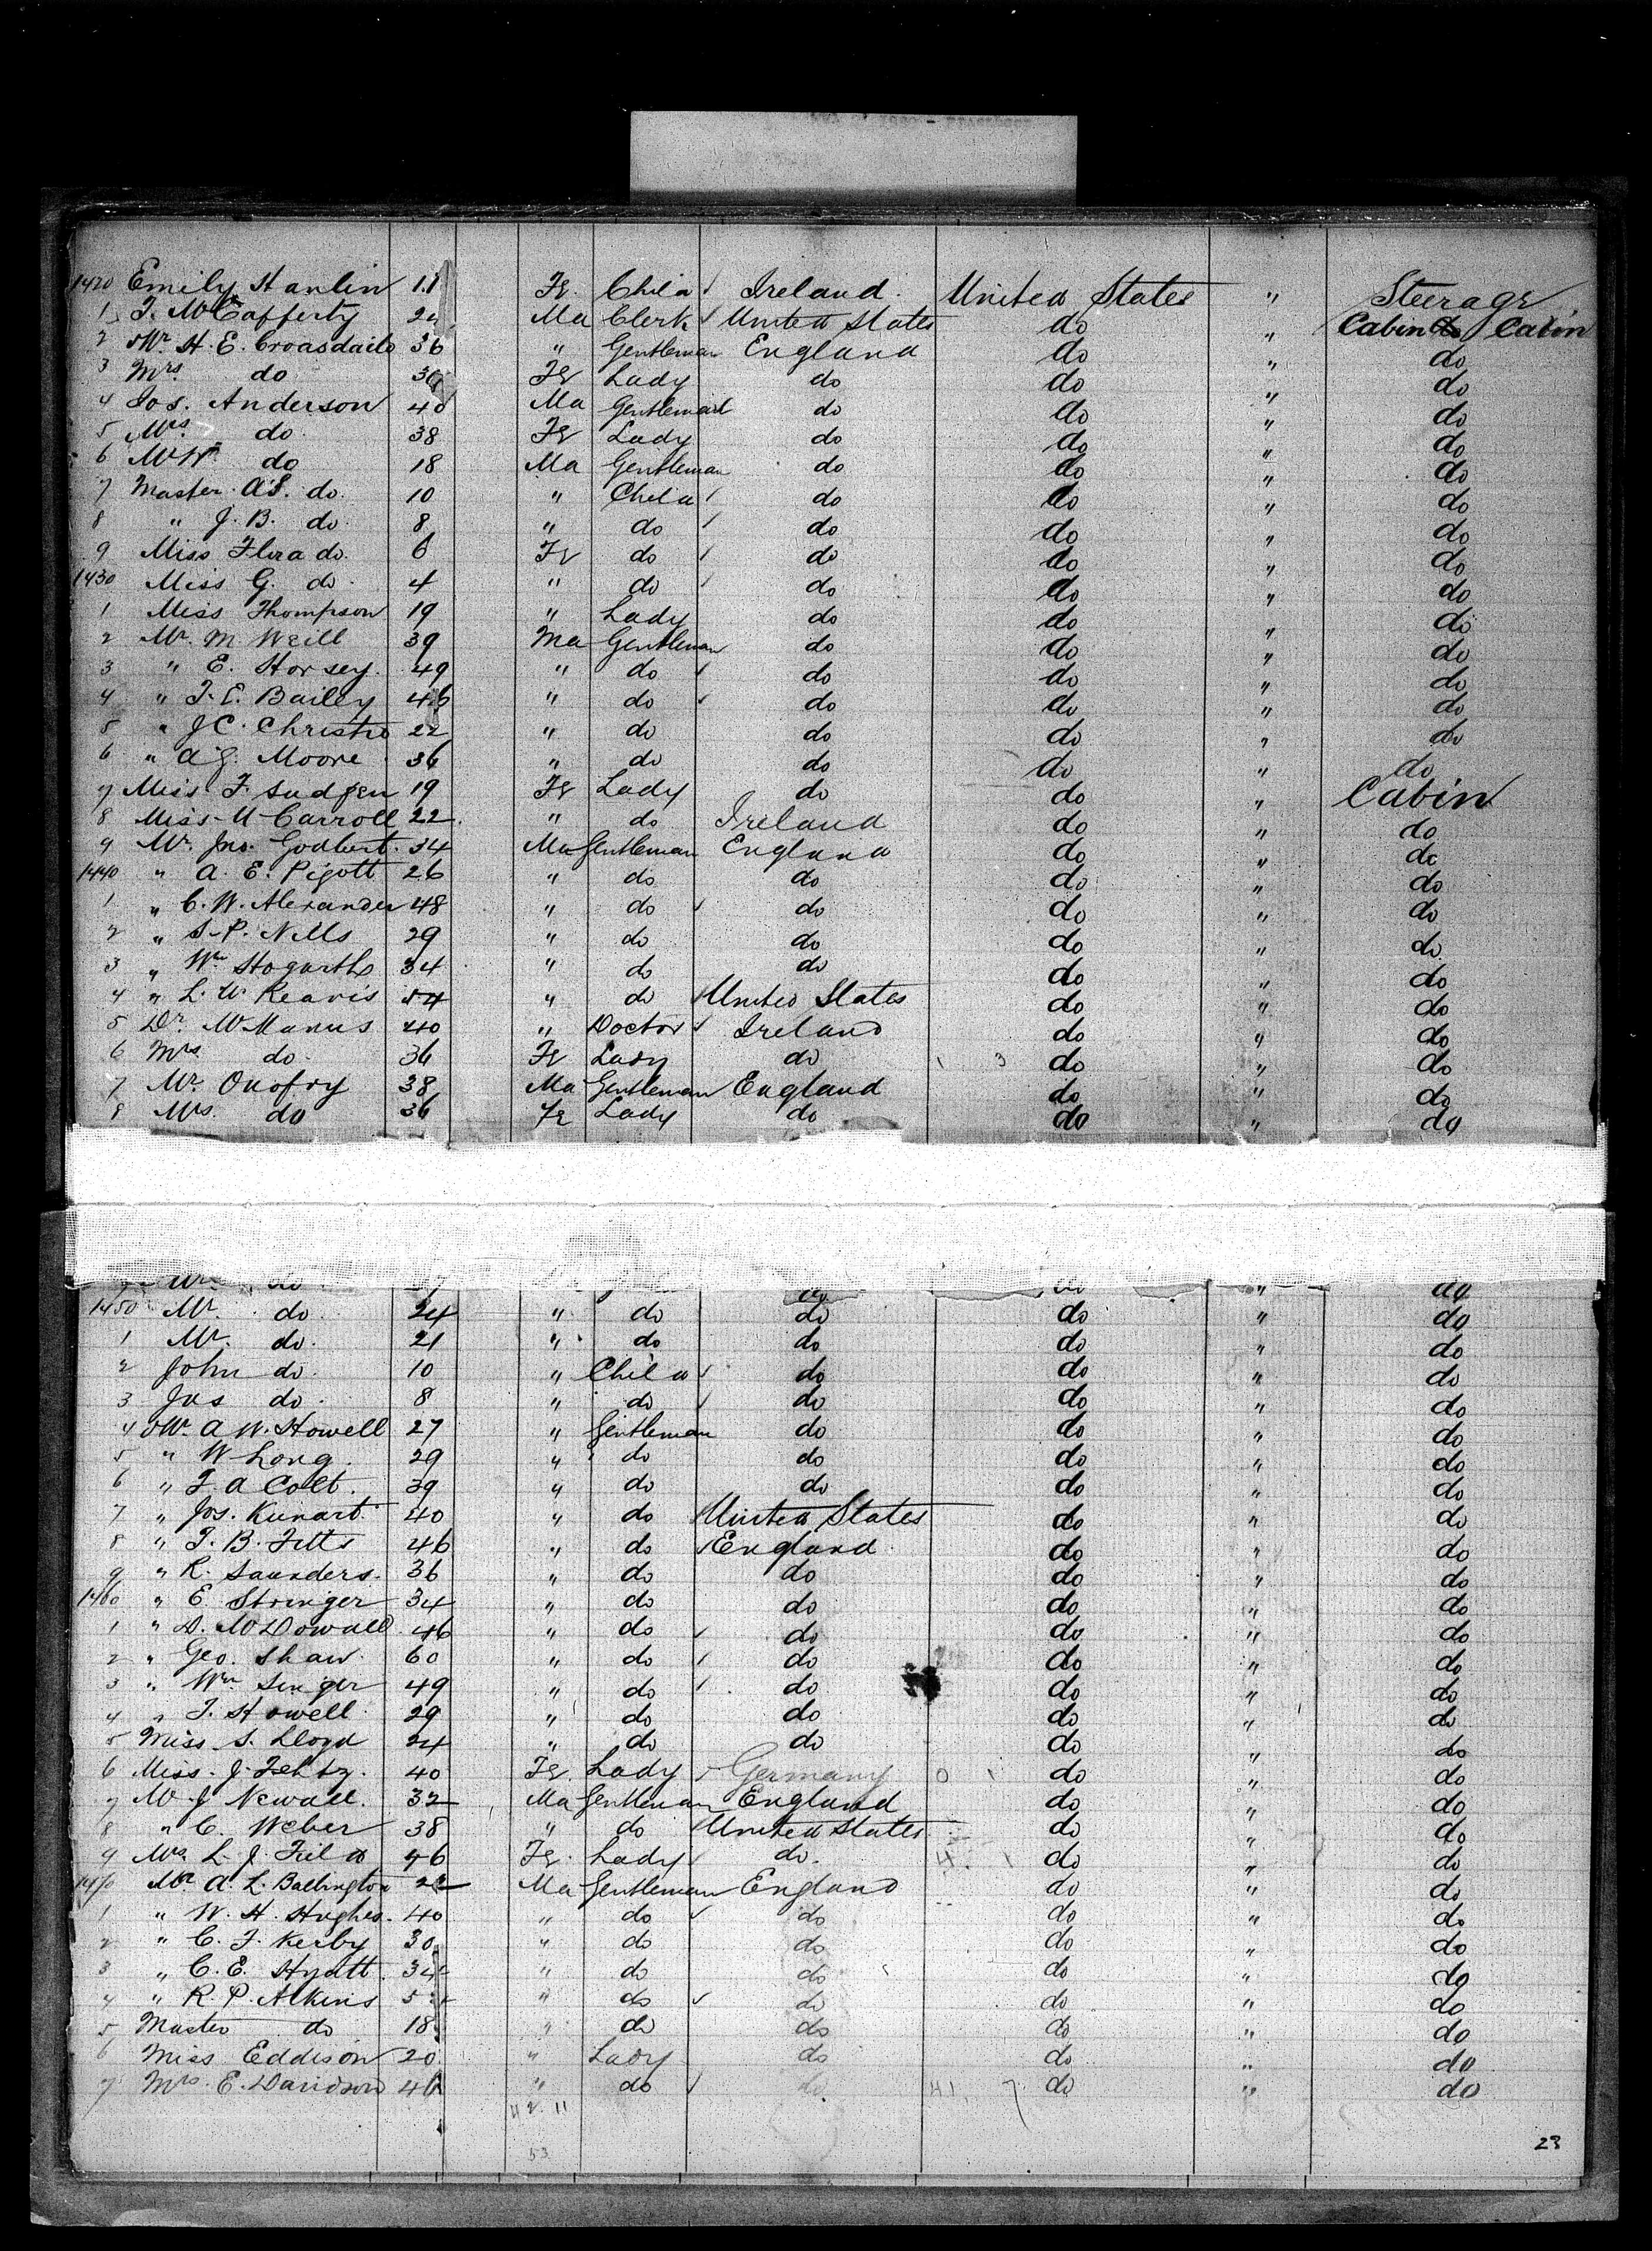 1420 Emily Hanlin 11 Fe. Child Ireland. United States " Steerage
1 F. McCafferty 24 Ma Clerk United States do " Cabin do Cabin
2 Mr H. E. Croasdaile 36 " Gentleman England do " do
3 Mrs. do 30 Fe Lady do do " do
4 Jos. Anderson 40 Ma Gentleman do do " do
5 Mrs. do 38 Fe Lady do do " do
6 Mr W. do 18 Ma Gentleman do do " do
7 Master A.S. do. 10 " Child do do " do
8 " J. B. do. 8 " do do do " do
9 Miss Flora do. 6 Fe do do do " do
1430 Miss G. do. 4 " do do do " do
1 Miss Thompson 19 " Lady do do " do
2 Mr. M Weill 39 Ma Gentleman do do " do
3 " E. Horsey. 49 " do do do " do
4 " T. E. Bailey 46 " do do do " do
5 " J C. Christie 22 " do do do " do
6 " A G. Moore 36 " do do do " do
7 Miss F. Sudgen 19 Fe Lady do do " Cabin
8 Miss M Carroll 22 " do Ireland do " do
9 Mr. Jno. Godbert. 34 Ma Gentleman England do " do
1440 " A. E. Pigott 26 " do do do " do
1 " C. W. Alexander 48 " do do do " do
2 " S. P. Nills 29 " do do do " do
3 " Wm Hogarth 34 " do do do " do
4 " L. W Reavis 54 " do United States do " do
5 Dr. McManus 40 " Doctor Ireland do " do
6 Mrs do. 36 Fe Lady do do " do
7 Mr. Onofry 38 Ma Gentleman England do " do
8 Mrs. do 36 Fe Lady do do " do
do do do " do
1450 Mr. do 24 " do do do " do
1 Mr. do. 21 " do do do " do
2 John do. 10 " Child do do " do
3 Jas do. 8 " do do do " do
4 Mr. A W. Howell 27 " Gentleman do do " do
5 " W Long. 29 " do do do " do
6 " F. A Colt. 39 " do do do " do
7 " Jos. Kunart. 40 " do United States do " do
8 " T. B. Fitts 46 " do England. do " do
9 " R. Saunders. 36 " do do do " do
1460 " E. Stringer 34 " do do do " do
1 " D. McDowall 46 " do do do " do
2 " Geo. Shaw. 60 " do do do " do
3 " Wm Singer 49 " do do do " do
4 " T. Howell. 29 " do do do " do
5 Miss S. Lloyd 24 " do do do " do
6 Miss. J. 40 Fe. Lady Germany do " do
7 Mr J Newall. 32 Ma Gentleman England do " do
8 " C. Weber 38 " do United States do " do
9 Mrs. L. J. Field 46 Fe. Lady do. do " do
1470 Mr A. L. Babbington 22 Ma Gentleman England do " do
1 " W. H. Hughes. 40 " do do do " do
2 " C. F. Kerby 30 " do do do " do
3 " C. E. Hyatt. 34 " do do do " do
4 " R. P. Atkins " do do do " do
5 Master do 18 " do do do " do
6 Miss Eddison 20 " Lady do do " do
7 Mrs. E. Davidson 46 " do do do " do
42. 11
53
23